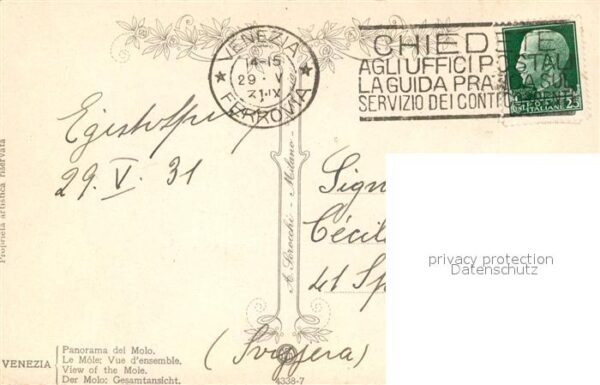 VENEZIA
14-15
29 · V
31 IX
FERROVIA
CHIEDE E
AGLI UFFICI POSTALI
LA GUIDA PRAT A SUL
SERVIZIO DEI CONTI
25
29. V. 31
Sign
Cécil
41 Sp
(Svizzera)
privacy protection
Datenschutz
Proprietà artistica riservata
A. Scrocchi - Milano
VENEZIA
Panorama del Molo.
Le Môle: Vue d'ensemble.
View of the Mole.
Der Molo: Gesamtansicht.
4338-7